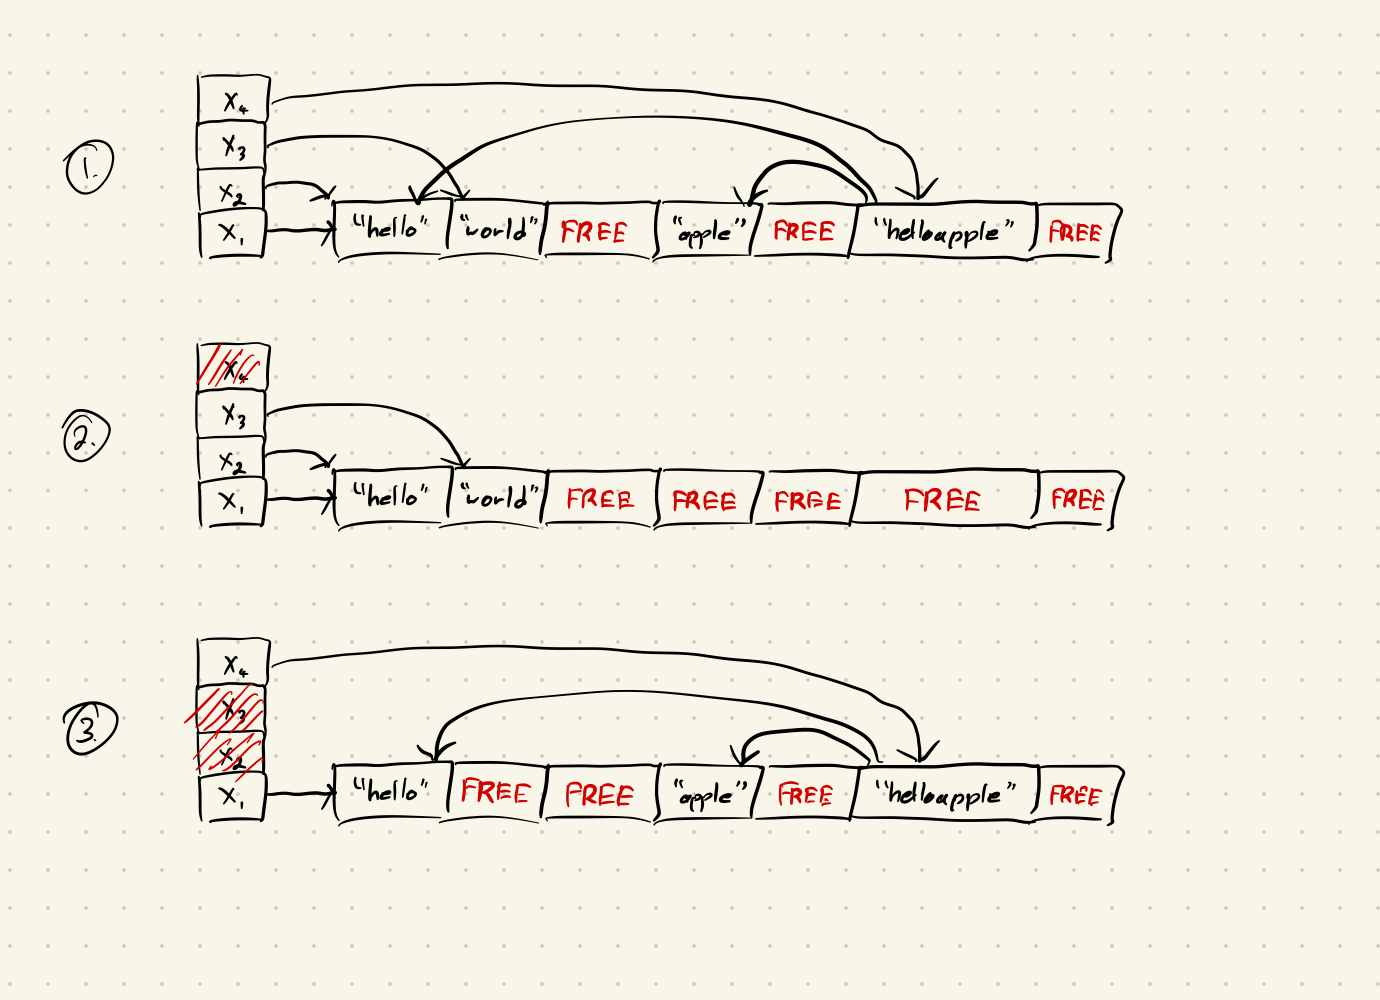 X₄
X₃
1.
X₂
X₁ "hello" "world" FREE "apple" FREE "helloapple" FREE
X₄
X₃
2.
X₂
X₁ "hello" "world" FREE FREE FREE FREE FREE
X₄
X₃
3.
X₂
X₁ "hello" FREE FREE "apple" FREE "helloapple" FREE